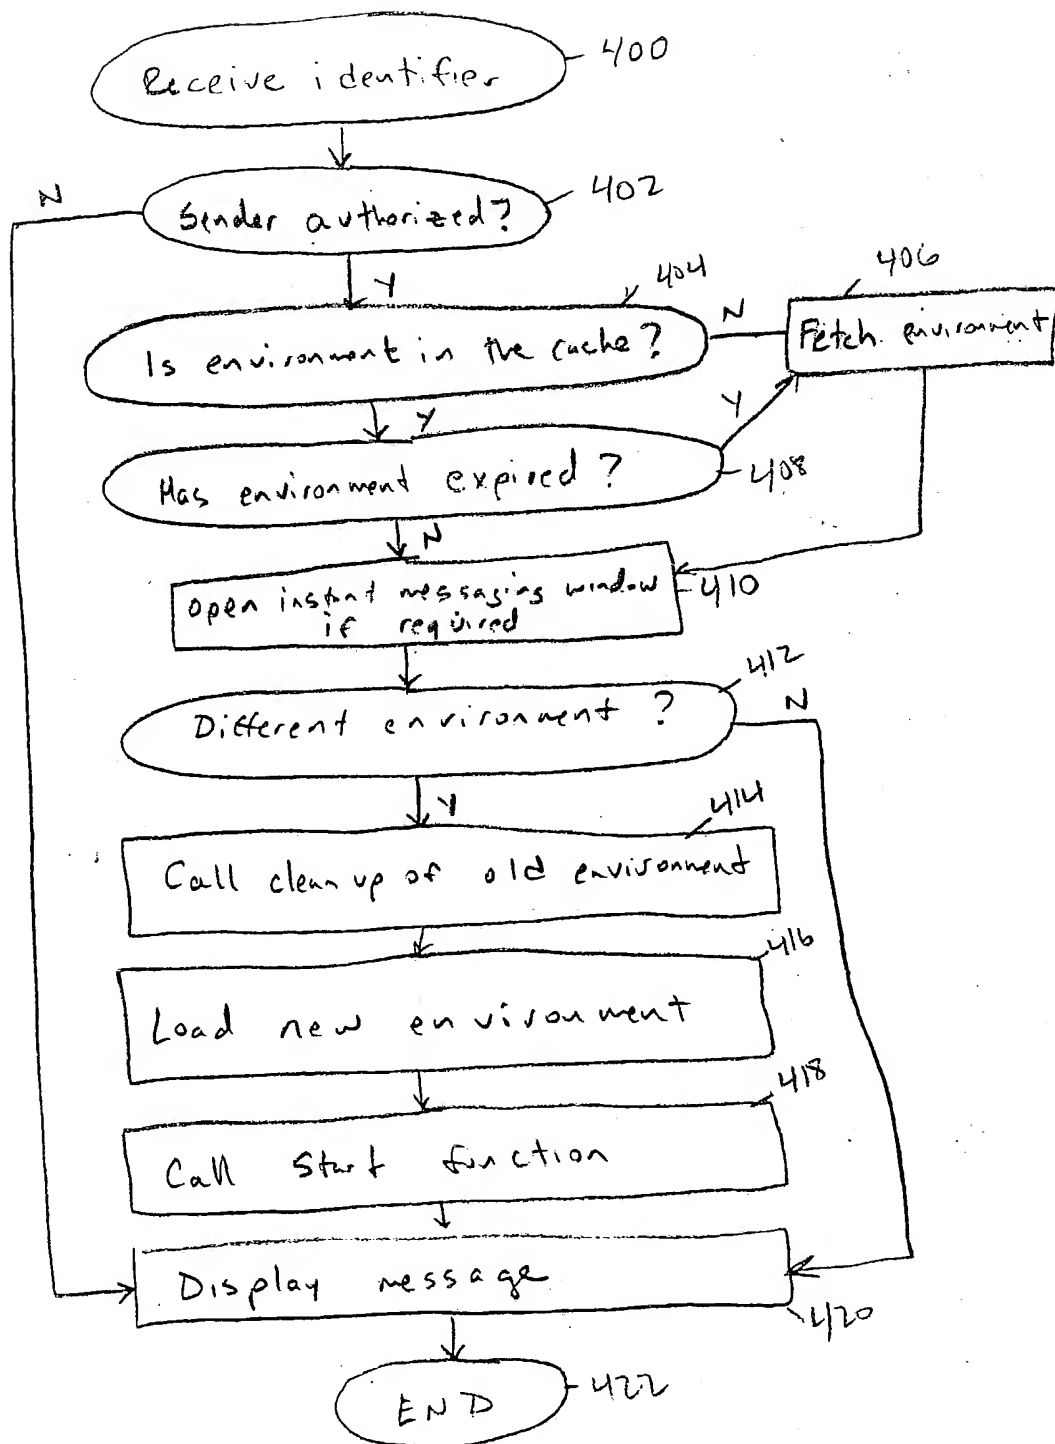 Receive identifier
400
Sender authorized?
402
N
Y
404
406
Is environment in the cache?
N
Fetch environment
Y
Y
Has environment expired?
408
N
Open instant messaging window
if required
410
412
Different environment?
N
Y
414
Call cleanup of old environment
416
Load new environment
418
Call Start function
Display message
420
END
422